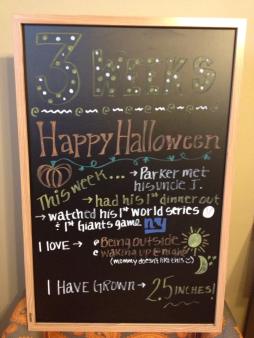 3 WEEKS
Happy Halloween
This week... → Parker met
his uncle J.
→ had his 1st dinner out
→ watched his 1st world series
& 1st Giants game ny
I LOVE → Being outside
waking up @ night
(mommy doesn't like this :))
I HAVE GROWN → 2.5 INCHES!